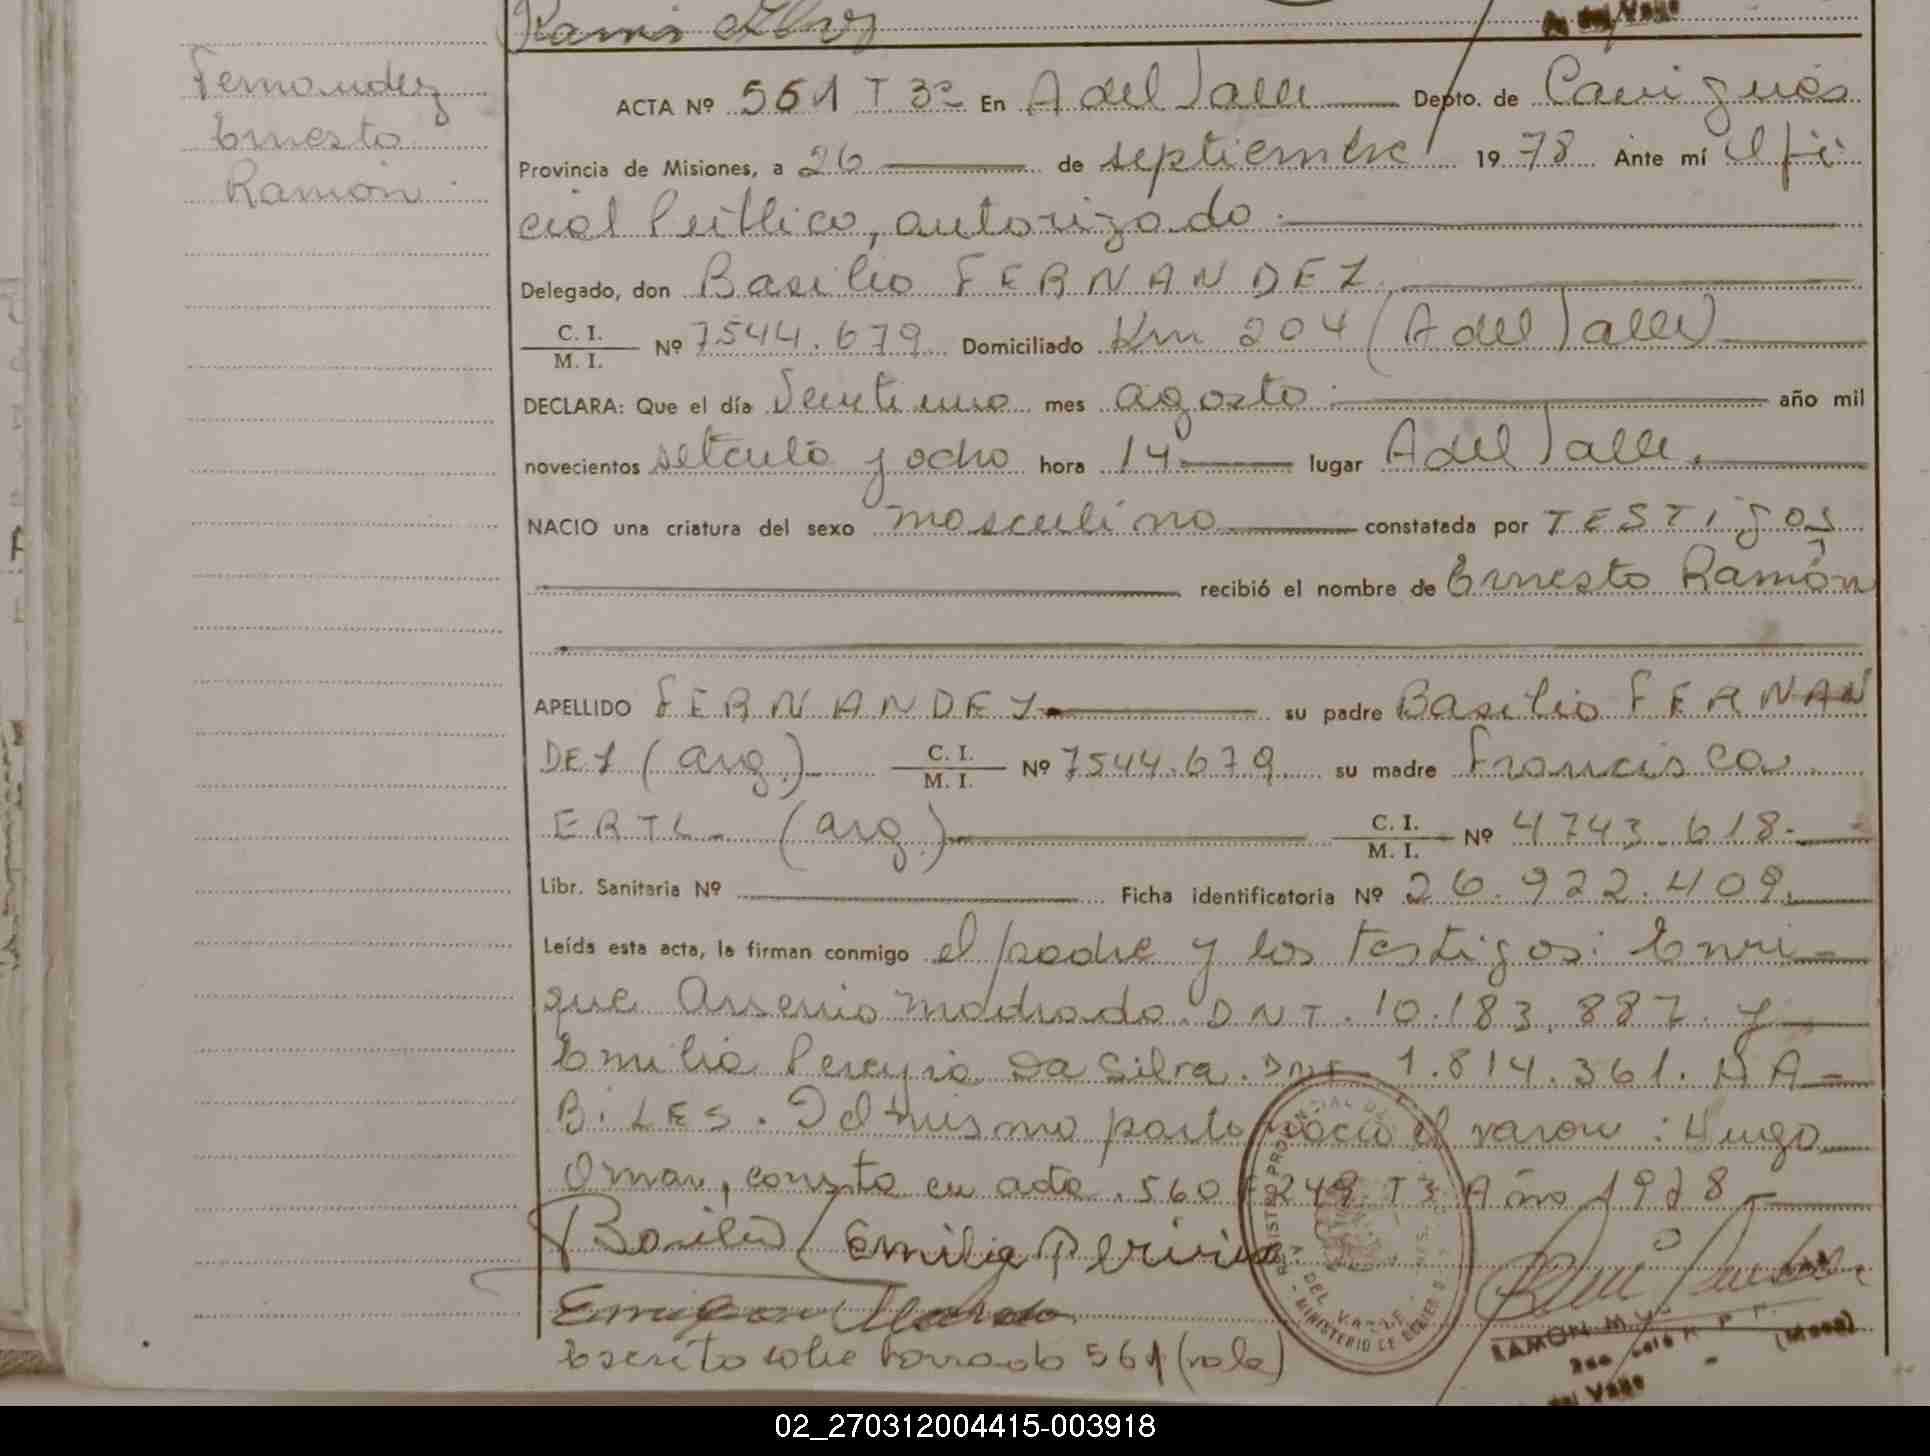 Fernandez
Ernesto
Ramón
ACTA Nº 561 T 3º En A del Valle Depto. de Caingúas
Provincia de Misiones, a 26 de septiembre 1978 Ante mí Ofi
cial Público, autorizado
Delegado, don Basilio FERNANDEZ
C. I.
M. I. Nº 7544.679 Domiciliado Km 204 (A del Valle)
DECLARA: Que el día Veintiuno mes agosto año mil
novecientos setenta y ocho hora 14 lugar A del Valle.
NACIO una criatura del sexo masculino constatada por TESTIgos
recibió el nombre de Ernesto Ramón
APELLIDO FERNANDEZ su padre Basilio FERNAN
DEZ (arg.) C. I. M. I. Nº 7544.679 su madre Francisca
ERTL (arg.) C. I. M. I. Nº 4743.618.
Libr. Sanitaria Nº Ficha identificatoria Nº 26.922.409.
Leída esta acta, la firman conmigo el padre y los testigos: Enri-
que Arsenio Machado. DNI. 10.183.887. y
Emilia Pereyra Da Silva. DNI 1.814.361. HA-
BiLES. Del mismo parto nació el varon: Hugo
Omar, consta en acta 560 F 249 T 3 Año 1978
Basilio Emilia
Escrito sobre borrado 561 (vale)
REGISTRO PROVINCIAL DE
A DEL VALLE
MINISTERIO DE GOBIER
RAMON
del Valle
02_270312004415-003918